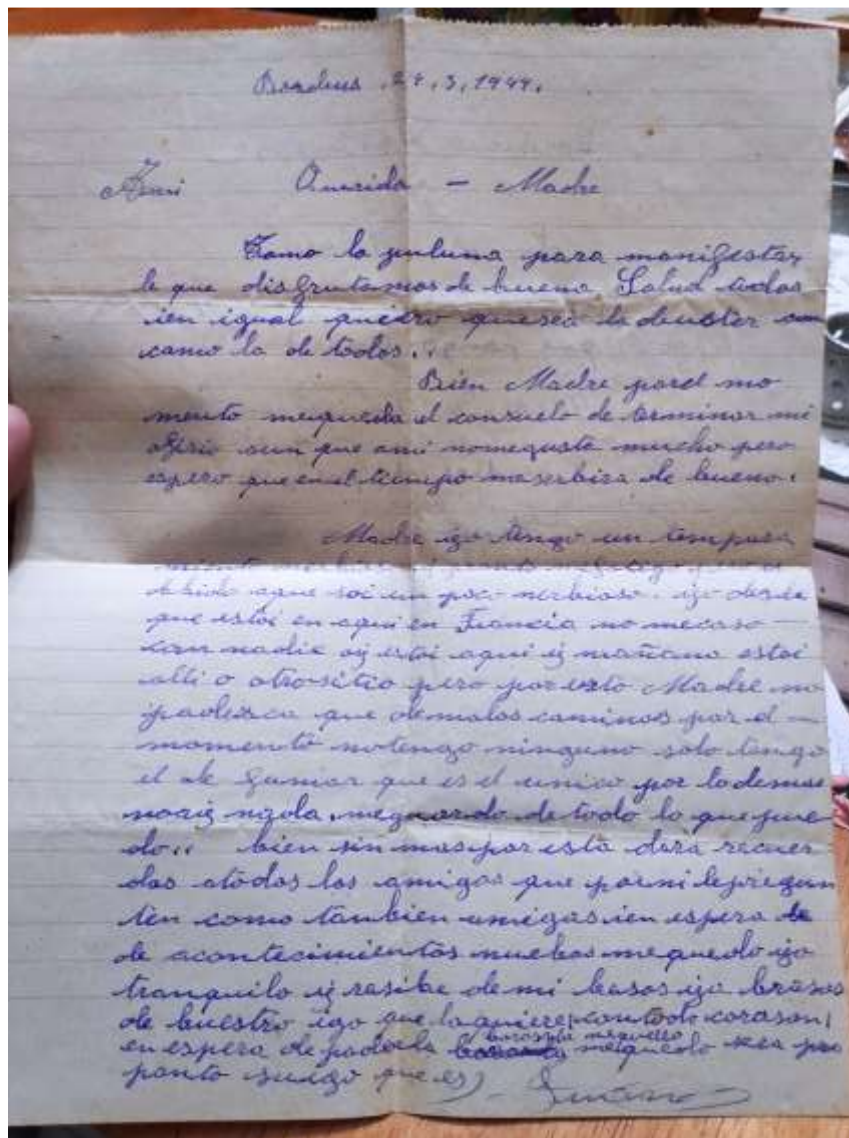 Bordeus. 24.3.1944.
Querida - Madre
Tomo la puluma para manifestar
le que disfrutamos de buena Salud todos
ien igual quiero quesea la de
como la de todos..
Bien Madre porel mo
mento mequeda el consuelo de terminar mi
ofisio aun que ami nomegusta mucho pero
espero que en el tiempo meserbira de bueno.
Madre igo tengo un tempera
miento
debido aque soi un poco nerbioso. igo desde
que estoi en aqui en Francia no mecaso
con nadie oij estoi aqui ij mañana estoi
alli o otrositio pero poresto Madre no
padesca que demalos caminos por el
momento notengo ninguno solo tengo
el de fumar que es el unico por lodemas
noaij nada. meguardo de todo lo que pue
do.. bien sin mas por esta dara recuer
dos atodos los amigos que pormi lepregun
ten como tanbien amigas ien espera
de acontecimientos nuebos mequedo igo
tranquilo ij rasibe de mi besos igo brasos
de buestro igo que la quiere con todo corason
en espera de mequedo sea pro
ponto suigo que es